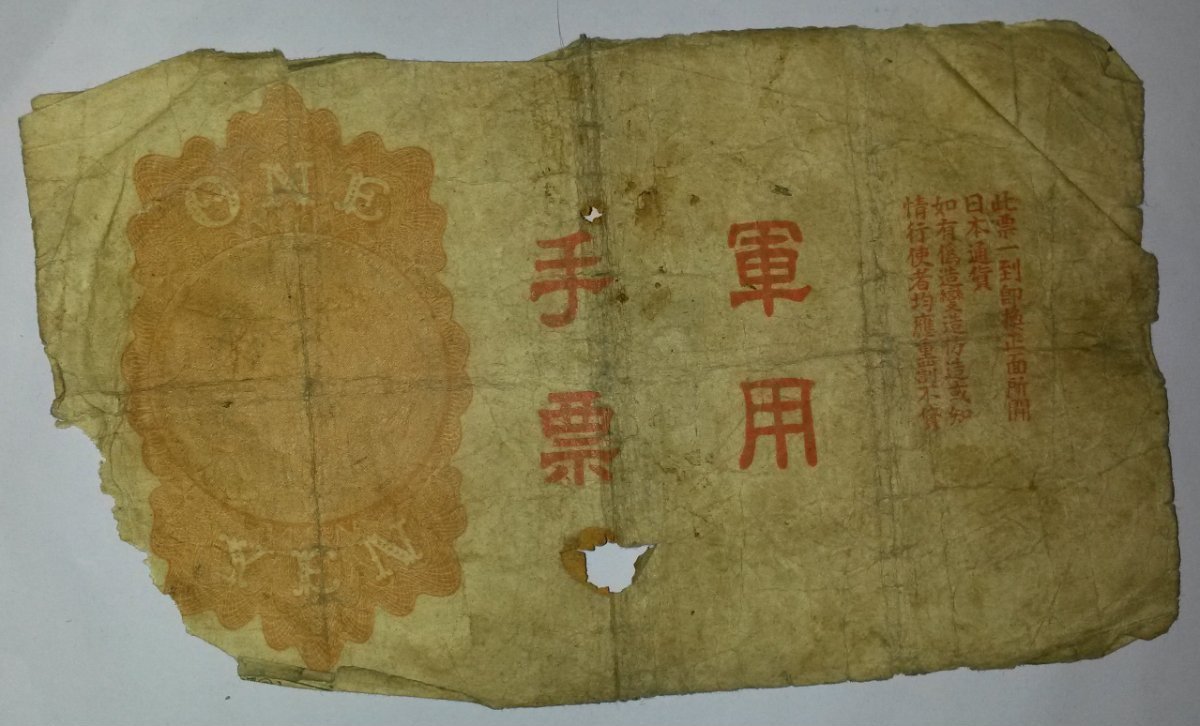 此票一到即換正面所開
日本通貨
如有偽造變造仿造或知
情行使者均應重罰不貸
軍用
手票
ONE
YEN